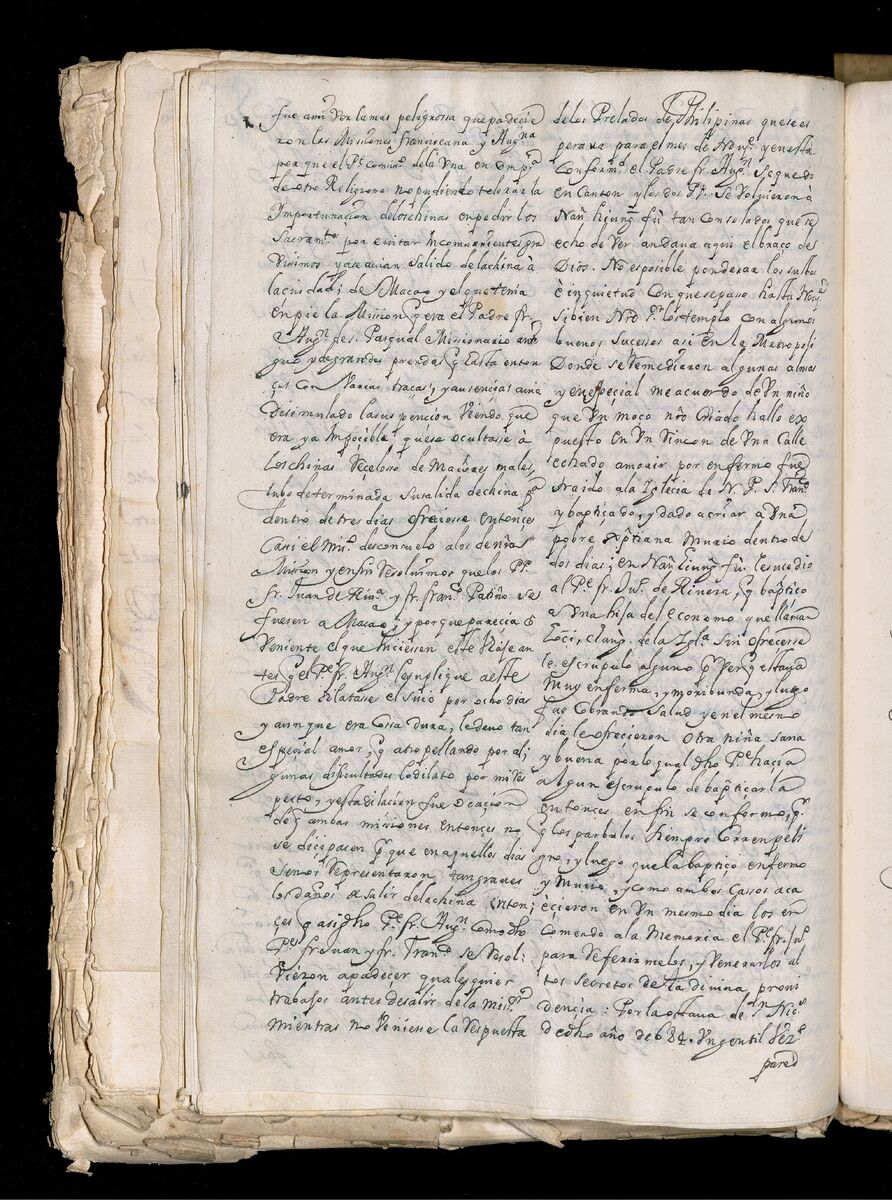 fue a mi Ver la mas peligrossa que padecie
ron las Missiones franciscana y Aug.na
por que el P.e Comis.o de la Vna en Comp.a
de otro Religioso no pudiendo tolerar la
Importunacion de los chinas en pedir los
Sacram.tos por euitar Inconuenientes gra
Vissimos ya se auian salido de la china à
la ciudad; de Macao y el que tenia
en pie la Mission q era el Padre fr.
Aug.n de s. Pasqual Missionario anti
guo y de grandes prendas q hasta enton
çes con Varias traças; y ausencias auia
Disimulado la suspención Viendo que
era ya Impocible; que se ocultasse à
los chinas Reçeloso de Maiores males,
tubo determinada su salida de china p.a
dentro de tres dias ofreciosse entonçes
Casi el Mis.o desconsuelo a los de n̄ra
Mission y en fin Resoluimos que los P.P.
fr. Juan de Riu.a y fr. fran.co Patiño se
fuesen a Macao; y porque parecia cō
Veniente el que hiciessen este Viaje an
tes q el P.e fr. Aug.n le suplique a este
Padre dilatase el suio por ocho dias
y aunque era Cossa dura, le deuo tan
espeçial amor, q atropellando por al;
gunas dificultades lo dilato por mi res
pecto, y esta dilacion fue ocacion
de q ambas misiones entonces no
se dicipasen p.r que en aquellos dias
se nos Representaron tan graues
los daños de salir de la china enton;
çes q asi dho P.e fr. Aug.n como dhos
P.es fr Juan y fr. Fran.co se Resol;
Vieron a padecer quales quier
trabajos antes de salir de la mis.on
mientras no Viniese la Respuesta
de los Prelados de Philipinas que se es
peraua para el mes de Nou.e y en esta
Conform.d el Padre fr. Aug.n se quedo
en Canton y los dos P.P. se Voluieron à
Nan hiung fù tan Consolados que se
echo de Ver andaua aqui el braço de
Dios. No es posible ponderar los sustos
è inquietud con que se paso hasta Nou.e
si bien Nr̄o S.r los templo con algunos
buenos Sucessos asi en la Metropoli
Donde se Remediaron algunas almas
y en especial me acuerdo de Vn niño
que Vn moço n̄ro Criado hallo ex
puesto en Vn Rincon de Vna Calle
echado a morir por enfermo fue
traido a la Iglecia de N. P. S. Fran.co
y bapticado, y dado a criar a Vna
pobre xp̄tiana Murio dentro de
dos dias; en Nan hiung fù. le sucedio
al P.e fr. Ju.o de Riuera, q baptico
a Vna hija del economo que llaman
de la Igl.a sin ofrecersse
le escrupulo alguno p.r Ver q estaua
Muy enferma, y moribunda, y luego
fue Cobrando Salud y en el mesmo
dia le ofrecieron otra niña sana
y buena por lo qual dho P.e haçia
algun escrupulo de bapticarla
entonces en fin se conformo, p.r
q los parbulos siempre Corren peli
gro, y luego que la baptiço enfermo
y Murio, y como ambos Cassos aca
ecieron en Vn mesmo dia los en
Comendo a la Memoria el P.e fr. Ju.o
para Referirmelos, y Venerarlos al
tos secretos de la diuina, proui
dençia: Por la octaua de S.n Nic.s
de dho año de 684. Vn gentil Vez.o
pared